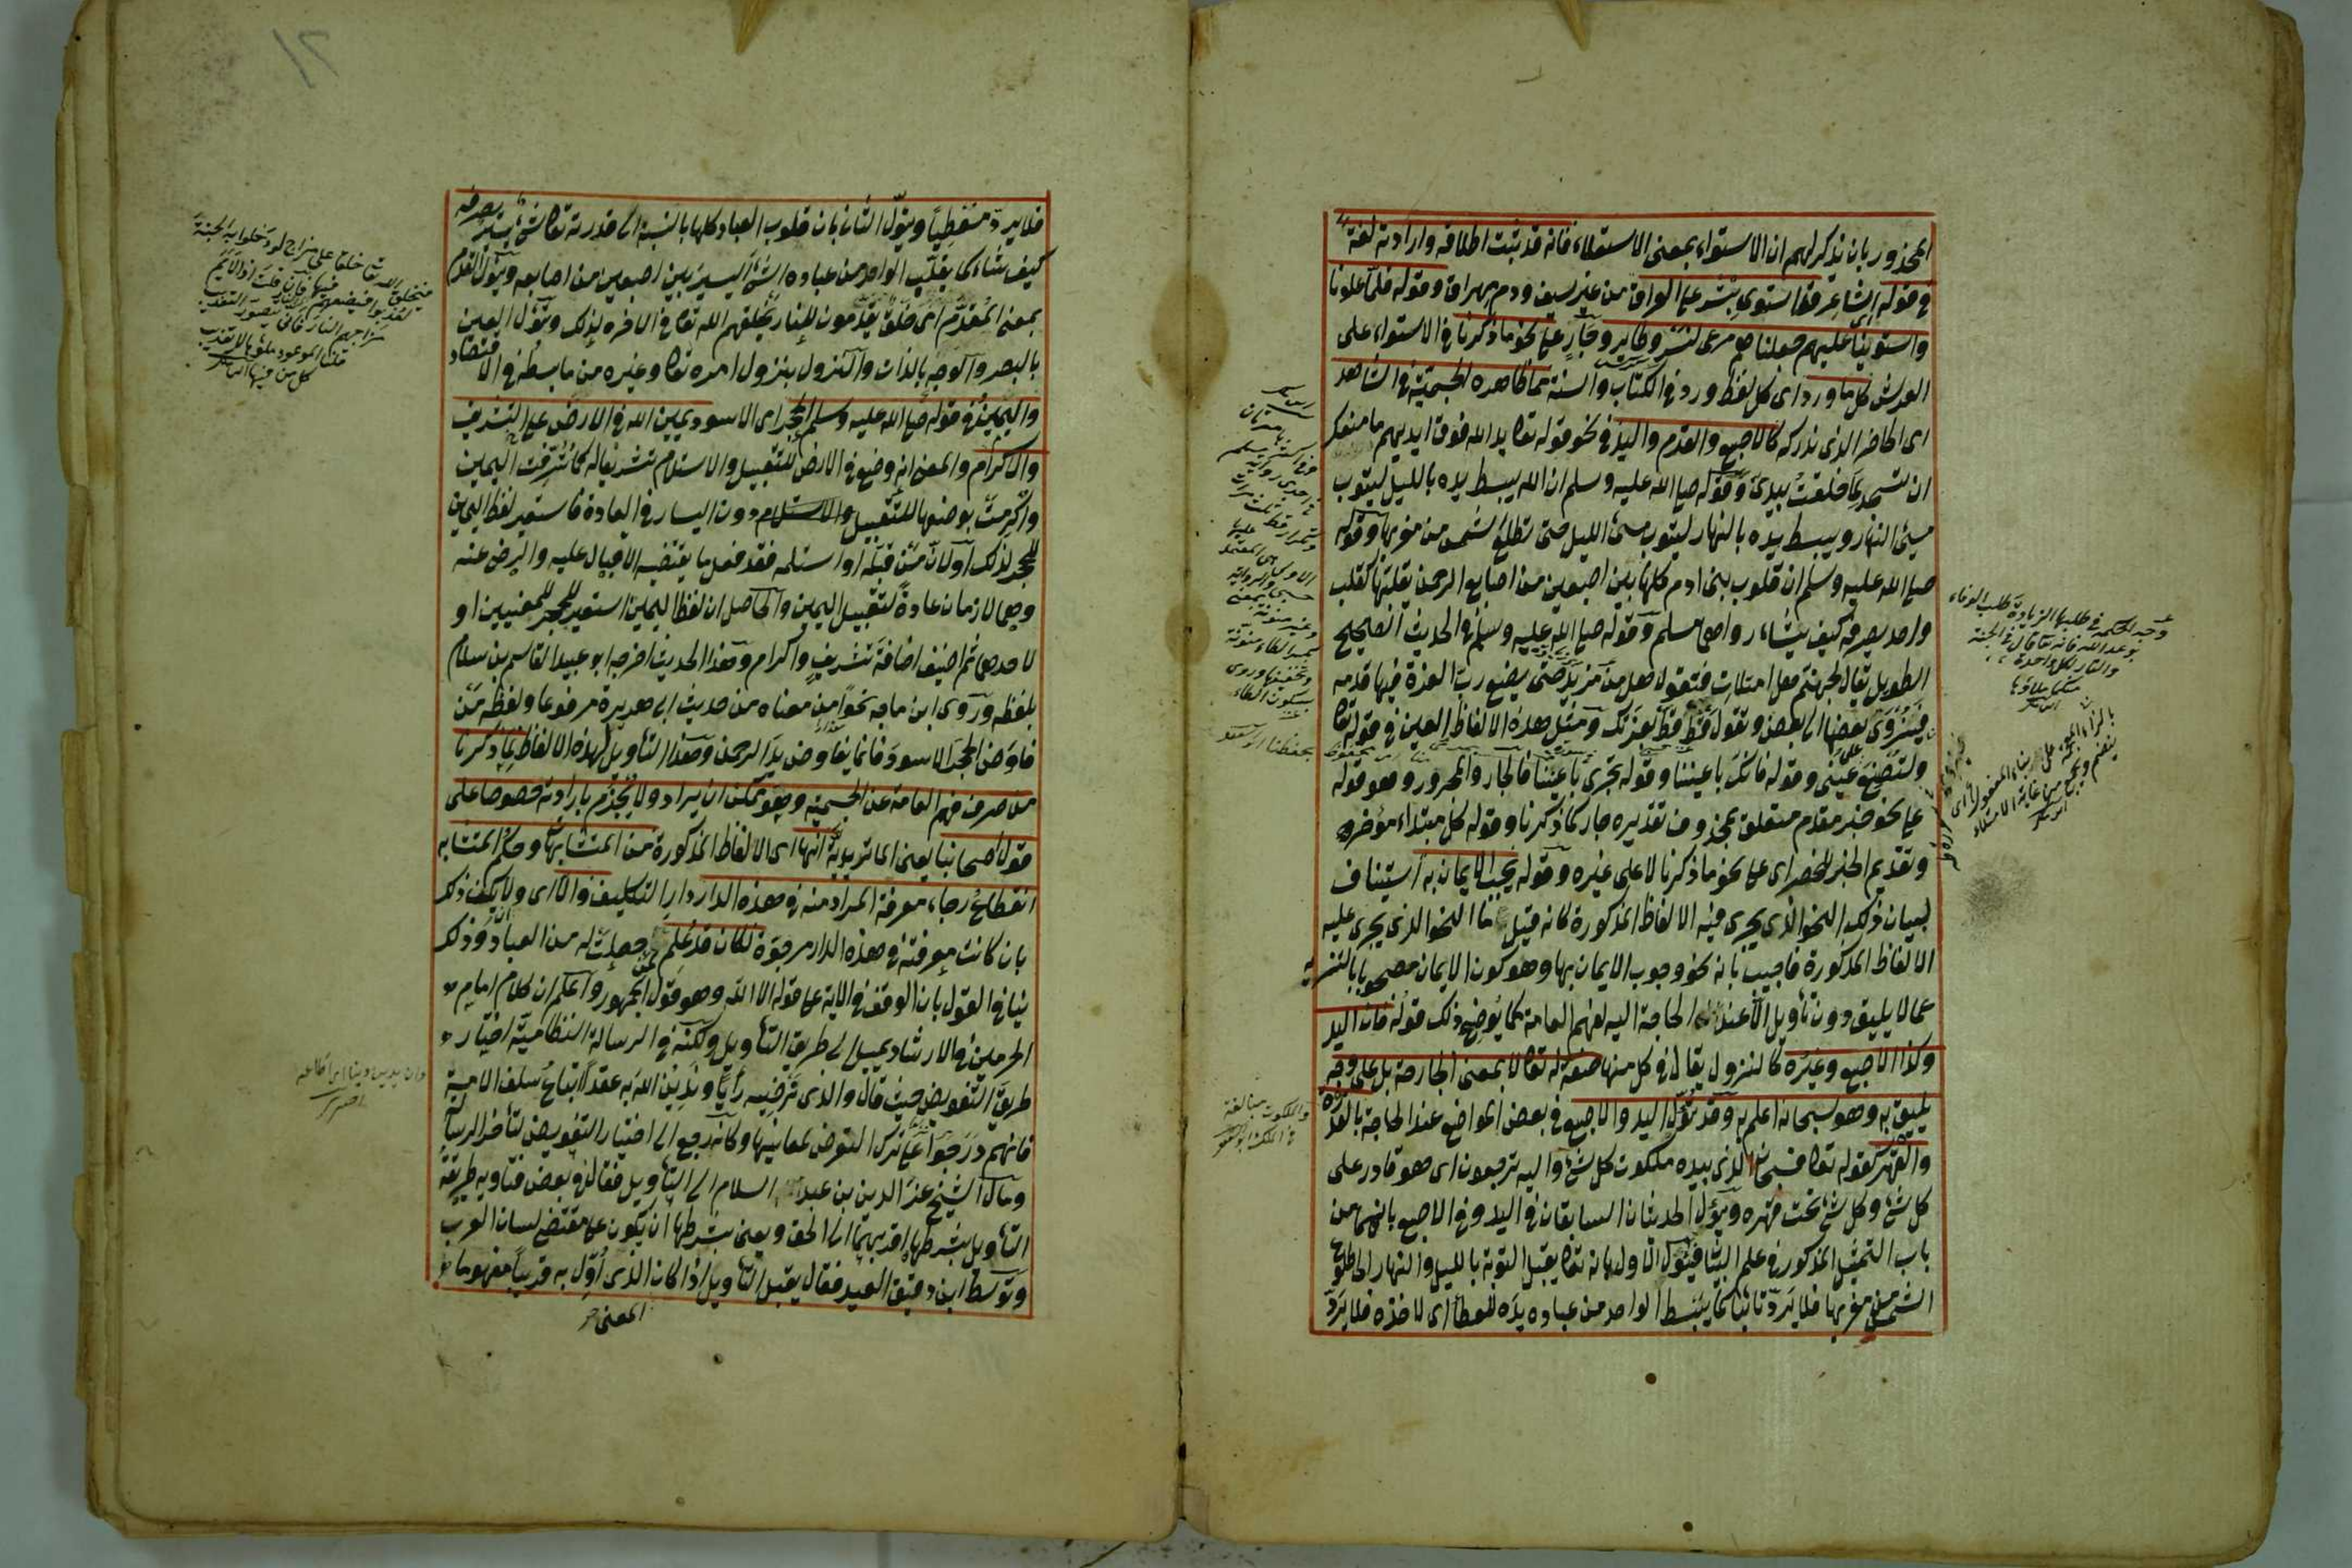 المحذور بان نذكر لهم ان الاستواء بمعنى الاستيلاء فانه قد ثبت اطلاقه وارادته لغة
في قوله الشاعر قد استوى بشر على العراق من غير سيف ودم مهراق وقوله فلما علونا
واستوينا عليهم جعلناهم مرعى لنسر وطاير وجار على نحو ما ذكرنا في الاستواء على
العرش كل ما ورد اى كل لفظ ورد في الكتاب والسنة مما ظاهره الجسمية في الشاهد
اى الحاضر الذى ندركه كالاصبع والقدم واليد في نحو قوله تعالى يد الله فوق ايديهم ما منعك
ان تسجد لما خلقت بيدي وقوله صلى الله عليه وسلم ان الله يبسط يده بالليل ليتوب
مسئ النهار ويبسط يده بالنهار ليتوب مسئ الليل حتى تطلع الشمس من مغربها وقوله
صلى الله عليه وسلم ان قلوب بنى ادم كلها بين اصبعين من اصابع الرحمن يقلبها كقلب
واحد يصرفه كيف يشاء رواهما مسلم وقوله صلى الله عليه وسلم في الحديث الصحيح
الطويل يقال لجهنم هل امتلات فتقول هل من مزيد حتى يضع رب العزة فيها قدمه
فينزوى بعضها الى بعض وتقول قط قط بعزتك ومثل هذه الالفاظ العين في قوله تعالى
ولتصنع على عينى وقوله فانك باعيننا وقوله تجرى باعيننا فالجار والمجرور وهو قوله
على نحو خبر مقدم متعلق بمحذوف تقديره جار كما ذكرنا وقوله كل مبتداء مؤخر
وتقديم الخبر للحصر اى على نحو ما ذكرنا لا على غيره وقوله يجب الايمان به استيناف
لبيان ذلك النحو الذى يجرى فيه الالفاظ المذكورة كانه قيل ما النحو الذى يجرى عليه
الالفاظ المذكورة فاجيب بانه نحو وجوب الايمان بها وهو كون الايمان مصحوبا بالتنزيه
عما لا يليق دون تأويل الا عند الحاجة اليه لفهم العامة كما يوضح ذلك قوله فان اليد
وكذا الاصبع وغيره كالنزول يقال في كل منها صفة له تعالى لا بمعنى الجارحة بل على وجه
يليق به وهو سبحانه اعلم به وقد تؤول اليد والاصبع في بعض المواضع عند الحاجة بالقدرة
والقهر كقوله تعالى فسبحان الذى بيده ملكوت كل شئ واليه ترجعون اى هو قادر على
كل شئ وكل شئ تحت قهره ويؤول الحديثان السابقان في اليد وفي الاصبع بانهما من
باب التمثيل المذكور في علم البيان فيؤول الاول بانه تعالى يقبل التوبة بالليل والنهار الى طلوع
الشمس من مغربها فلا يرد تائبا كما يبسط الواحد من عباده يده للعطاء اى لاخذه فلا يرد
وجه الحكمة في طلبها الزيادة طلب الوفاء
بوعد الله فانه تعالى قال في الجنة
والنار لكل واحدة
منكما ملاؤها
والملكوت مبالغة
في الملك
فلا يرد معطيا ويؤول الثانى بان قلوب العباد كلها بالنسبة الى قدرته تعالى شئ يسير يصرفه
كيف شاء كما يقلب الواحد من عباده الشئ اليسير بين اصبعين من اصابعه ويؤول القدم
بمعنى المقدم اى خلق يقدمون للنار يخلقهم الله تعالى في الاخرة لذلك وتؤول العين
بالبصر والوجه بالذات والنزول بنزول امره تعالى وغيره من ما بسطه في الاقتصاد
واليمين في قوله صلى الله عليه وسلم الحجر اى الاسود يمين الله في الارض على التشريف
والاكرام والمعنى انه وضع في الارض للتقبيل والاستلام تشريفا له كما شرفت اليمين
واكرمت بوضعها للتقبيل والاستلام دون اليسار في العادة فاستعير لفظ اليمين
للحجر لذلك او لان من قبله او استلمه فقد فعل ما يقتضيه الاقبال عليه والرضى عنه
وهما لازمان عادة لتقبيل اليمين والحاصل ان لفظ اليمين استعير للحجر للمعنيين او
لاحدهما ثم اضيف اضافة تشريف واكرام وهذا الحديث اخرجه ابو عبيد القاسم بن سلام
بلفظه وروى ابن ماجه نحوا من معناه من حديث ابى هريرة مرفوعا ولفظه من
فاوض الحجر الاسود فانما يفاوض يد الرحمن وهذا التأويل لهذه الالفاظ لما ذكرنا
من صرف فهم العامة عن الجسمية وهو ممكن ان يراد ولا يجزم بارادته خصوصا على
قول اصحابنا يعنى الماتريدية انها اى الالفاظ المذكورة من المتشابهات وحكم المتشابه
انقطاع رجاء معرفة المراد منه في هذه الدار دار التكليف والا اى ولا يكن ذلك
بان كانت معرفته في هذه الدار مرجوة لكان قد علم لمن جعلت له من العباد وذلك
ينافي القول بان الوقف في الاية على قوله الا الله وهو قول الجمهور واعلم ان كلام امام
الحرمين في الارشاد يميل الى طريق التأويل ولكنه في الرسالة النظامية اختيار
طريق التفويض حيث قال والذى نرتضيه رأيا وندين الله به عقدا اتباع سلف الامة
فانهم درجوا على ترك التعرض لمعانيها وكانه رجع الى اختيار التفويض لتأخر الرسالة
ومال الشيخ عز الدين بن عبد السلام الى التأويل فقال في بعض فتاويه طريقة
التأويل بشرطها اقربهما الى الحق ويعنى بشرطها ان يكون على مقتضى لسان العرب
وتوسط ابن دقيق العيد فقال يقبل التأويل اذا كان الذى اول به قريبا مفهوما
المعنى